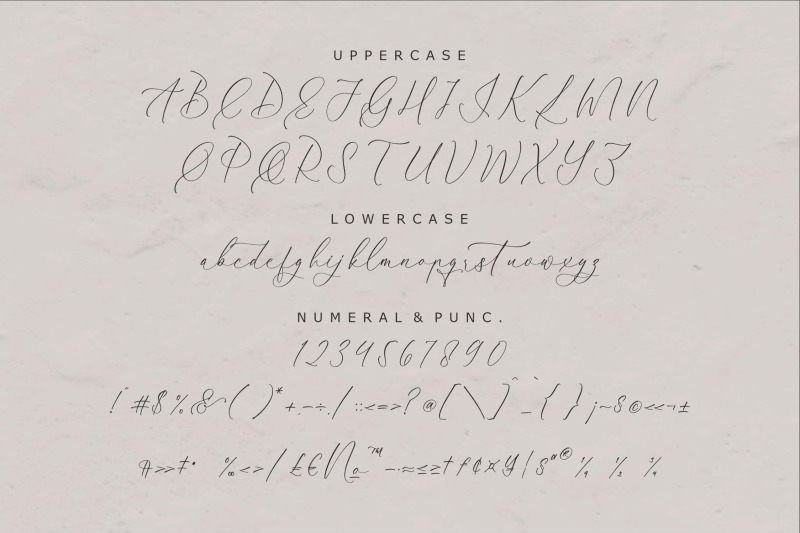 UPPERCASE
ABCDEFGHIJKLMN
OPQRSTUVWXYZ
LOWERCASE
abcdefghijklmnopqrstuvwxyz
NUMERAL & PUNC.
1234567890
!"#$%&()*+,-÷./:;<=>?@[\]^_`{}¡~S©<<¬±
>>‡•‰<>/£€№™-·≈≤≥†ƒ¢¤¥|§ª®¼ ½ ¾